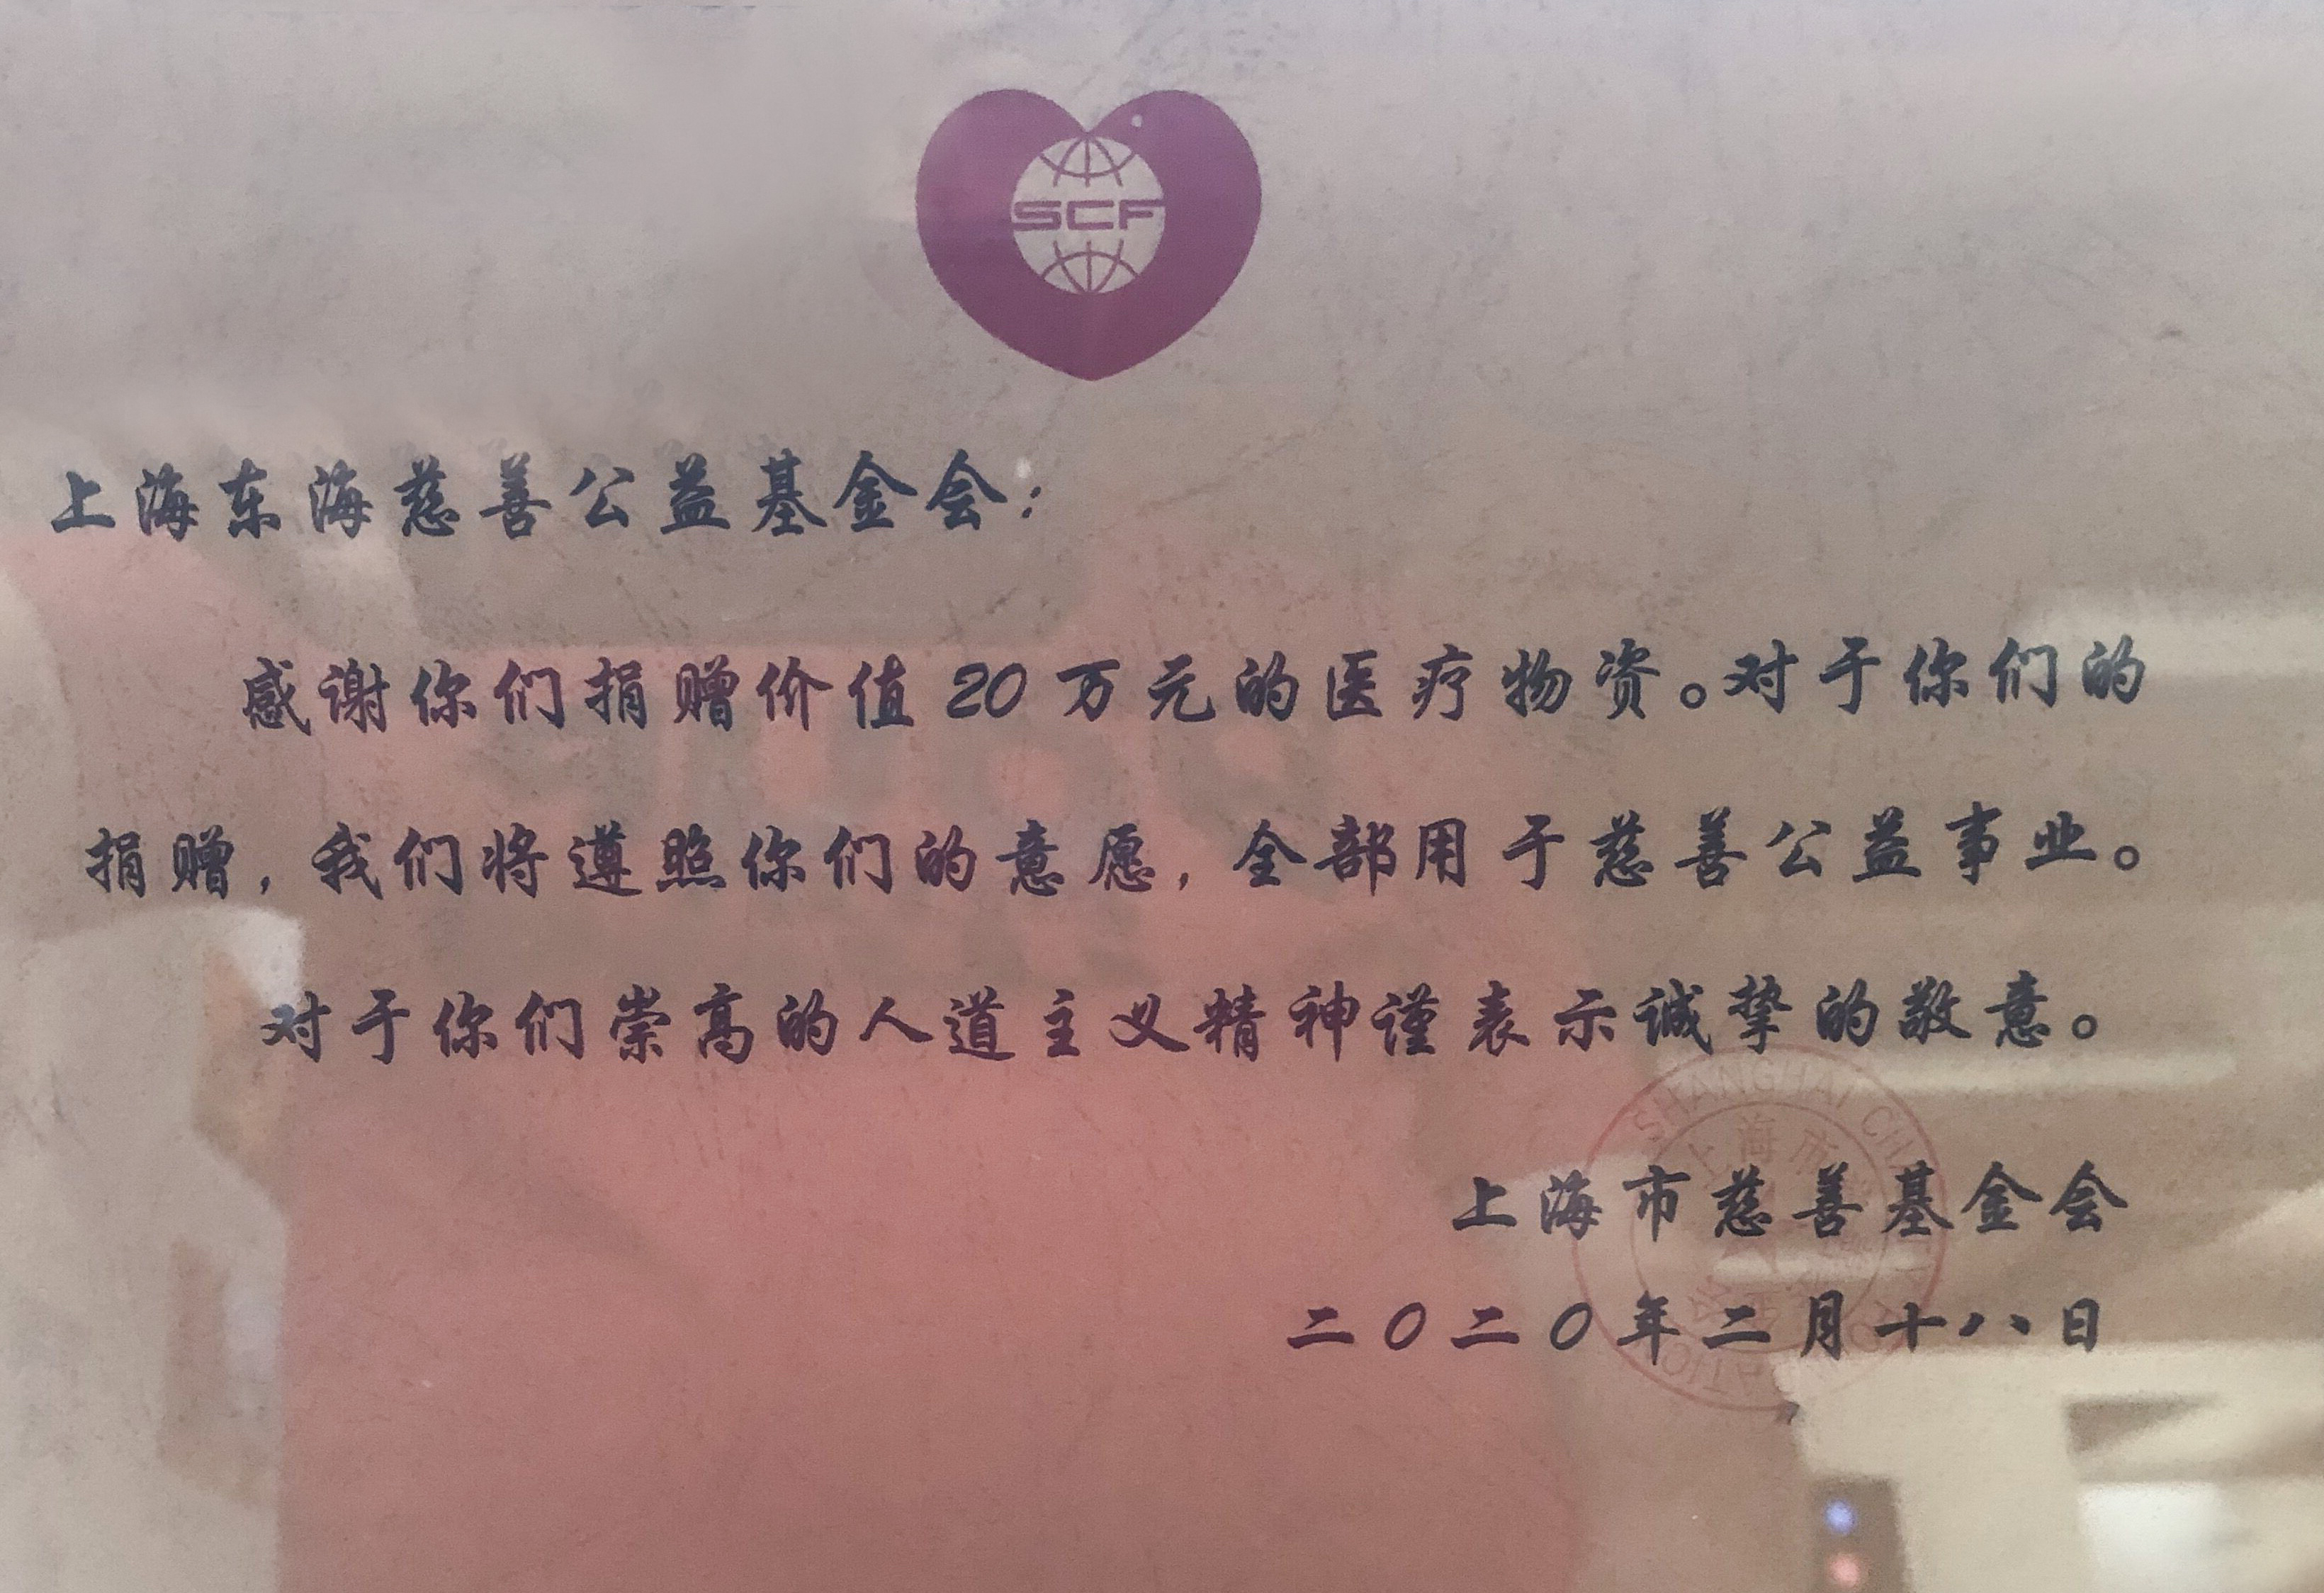 SCF
上海东海慈善公益基金会：
感谢你们捐赠价值20万元的医疗物资。对于你们的
捐赠，我们将遵照你们的意愿，全部用于慈善公益事业。
对于你们崇高的人道主义精神谨表示诚挚的敬意。
SHANGHAI
上海市
上海市慈善基金会
二0二0年二月十八日